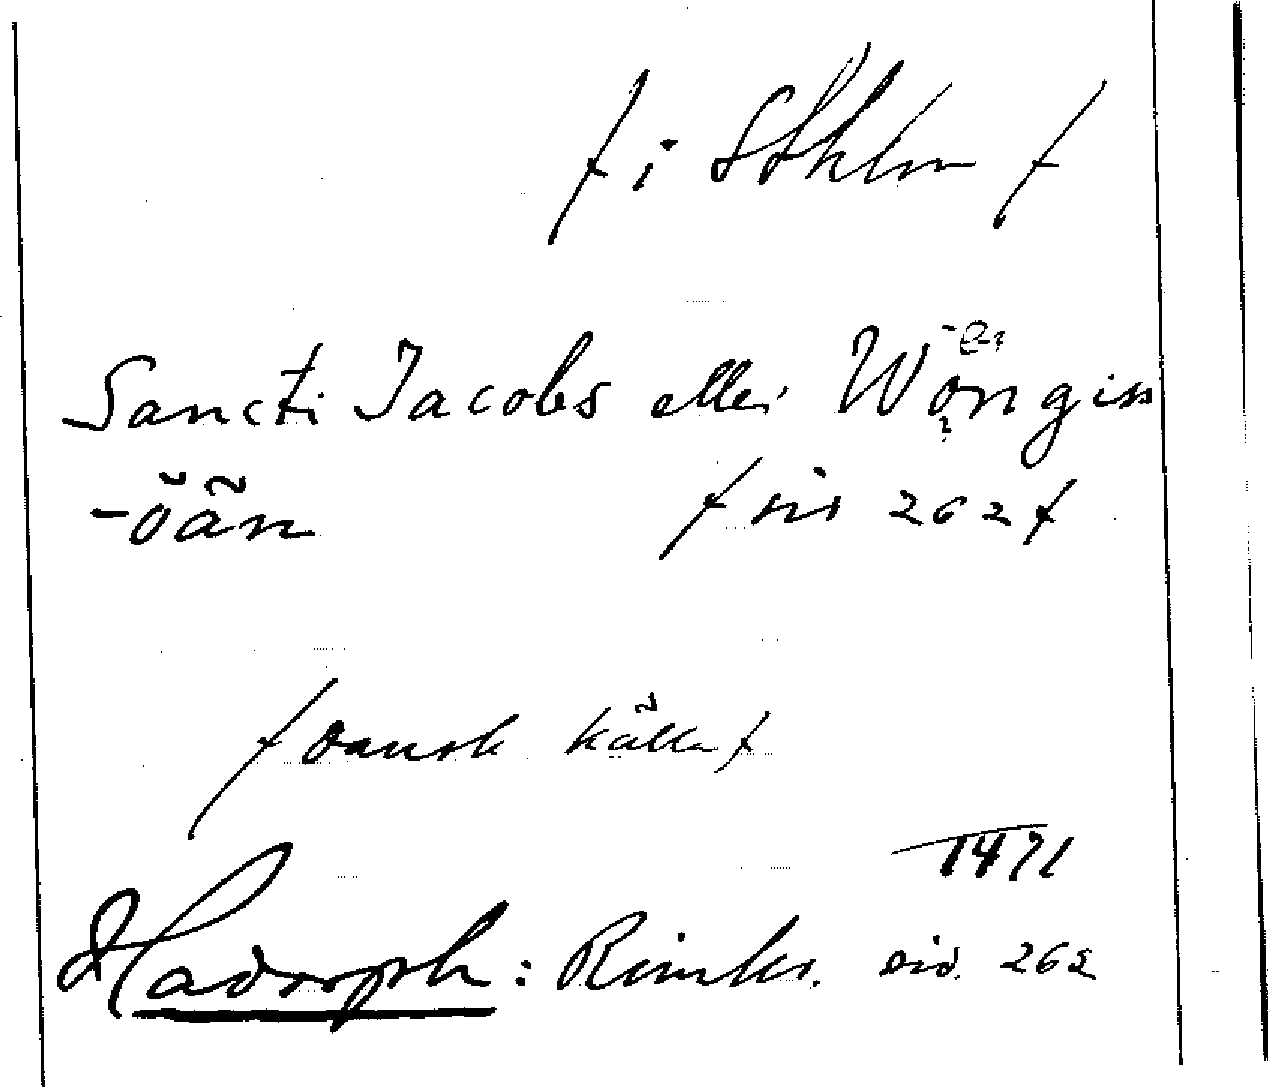 /i Sthlm/
Sancti Jacobs eller Wöngiss
-öän /sid 262/
/Dansk källa/
1471
Hadorph: Rimkr. sid. 262